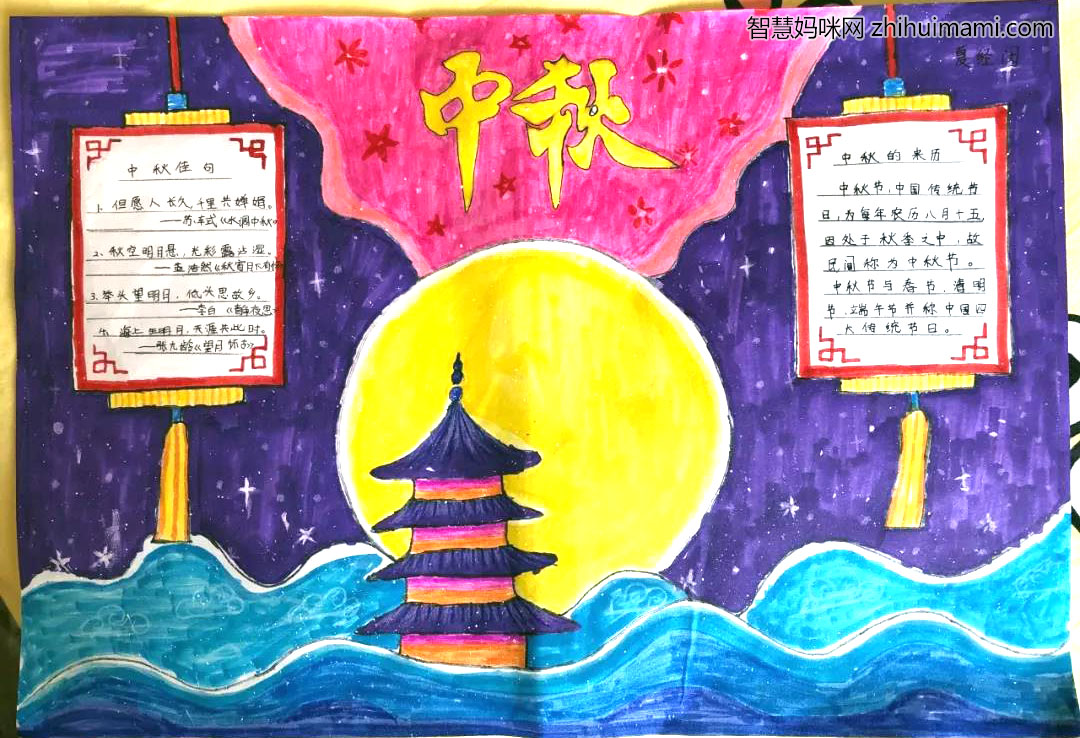 智慧妈咪网 zhihuimami.com
中秋
中秋佳句
1. 但愿人长久,千里共婵娟。
——苏轼《水调中秋》
2. 秋空明月悬,光彩露沾湿。
——孟浩然《秋宵月下有怀
3. 举头望明月,低头思故乡。
——李白《静夜思》
4. 海上生明月,天涯共此时。
——张九龄《望月怀古》
中秋的来历
中秋节,中国传统节
日,为每年农历八月十五
因处于秋季之中,故
民间称为中秋节。
中秋节与春节、清明
节、端午节并称中国四
大传统节日。